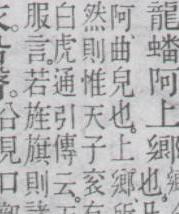 龍蟠阿上鄉
阿曲皃也。上鄉
然則惟天子衮
白虎通引傳云。
服言。若旌旗則
公見口